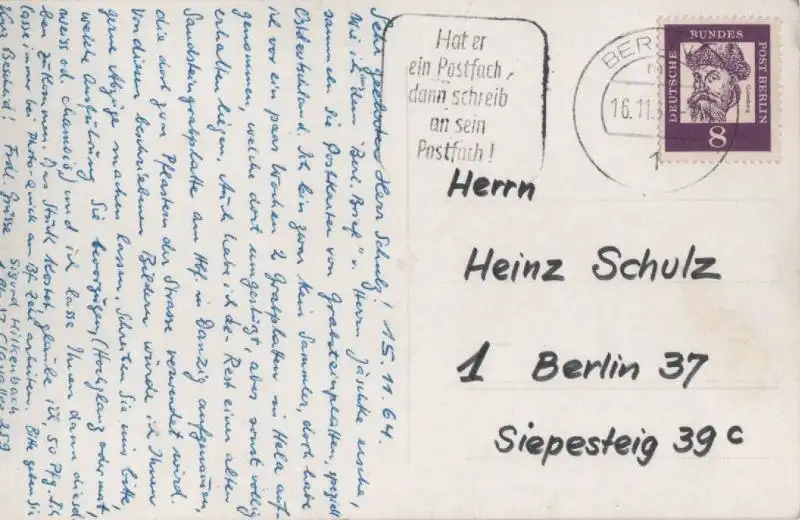 Sehr geehrter Herr Schulz! 15.11.64.
Wie ich dem "Berl. Brief" v. Herrn Jäschke ersehe,
sammeln Sie Postkarten von Grabsteinplatten, speziell
Ostdeutschland. Ich bin zwar kein Sammler, doch habe
ich vor ein paar Wochen 2 Grabplatten in Hela auf-
genommen, welche dort umgestürzt, aber sonst völlig
erhalten liegen. Auch habe ich den Rest einer alten
Sandsteingrabplatte am Hbf. in Danzig aufgenommen,
die dort zum Pflastern der Strasse verwendet wird.
Von diesen beschriebenen Bildern würde ich Ihnen
gerne Abzüge machen lassen. Schreiben Sie mir bitte,
welche Ausführung Sie bevorzugen (Hochglanz oder matt,
weiss od. chamois) und ich lasse Ihnen dann diesel-
ben zukommen. Das Stück kostet, glaube ich, 50 Pfg. Ich
lasse immer bei Photo- am Bf. Zoo arbeiten. Bitte geben Sie
Bescheid! Frdl. Grüsse
Sigurd Hilkenbach
1 Bln 37 Clayallee 259
Hat er
ein Postfach,
dann schreib
an sein
Postfach!
BER
16.11.
1
DEUTSCHE BUNDES POST BERLIN
Gutenberg
8
Herrn
Heinz Schulz
1 Berlin 37
Siepesteig 39 c